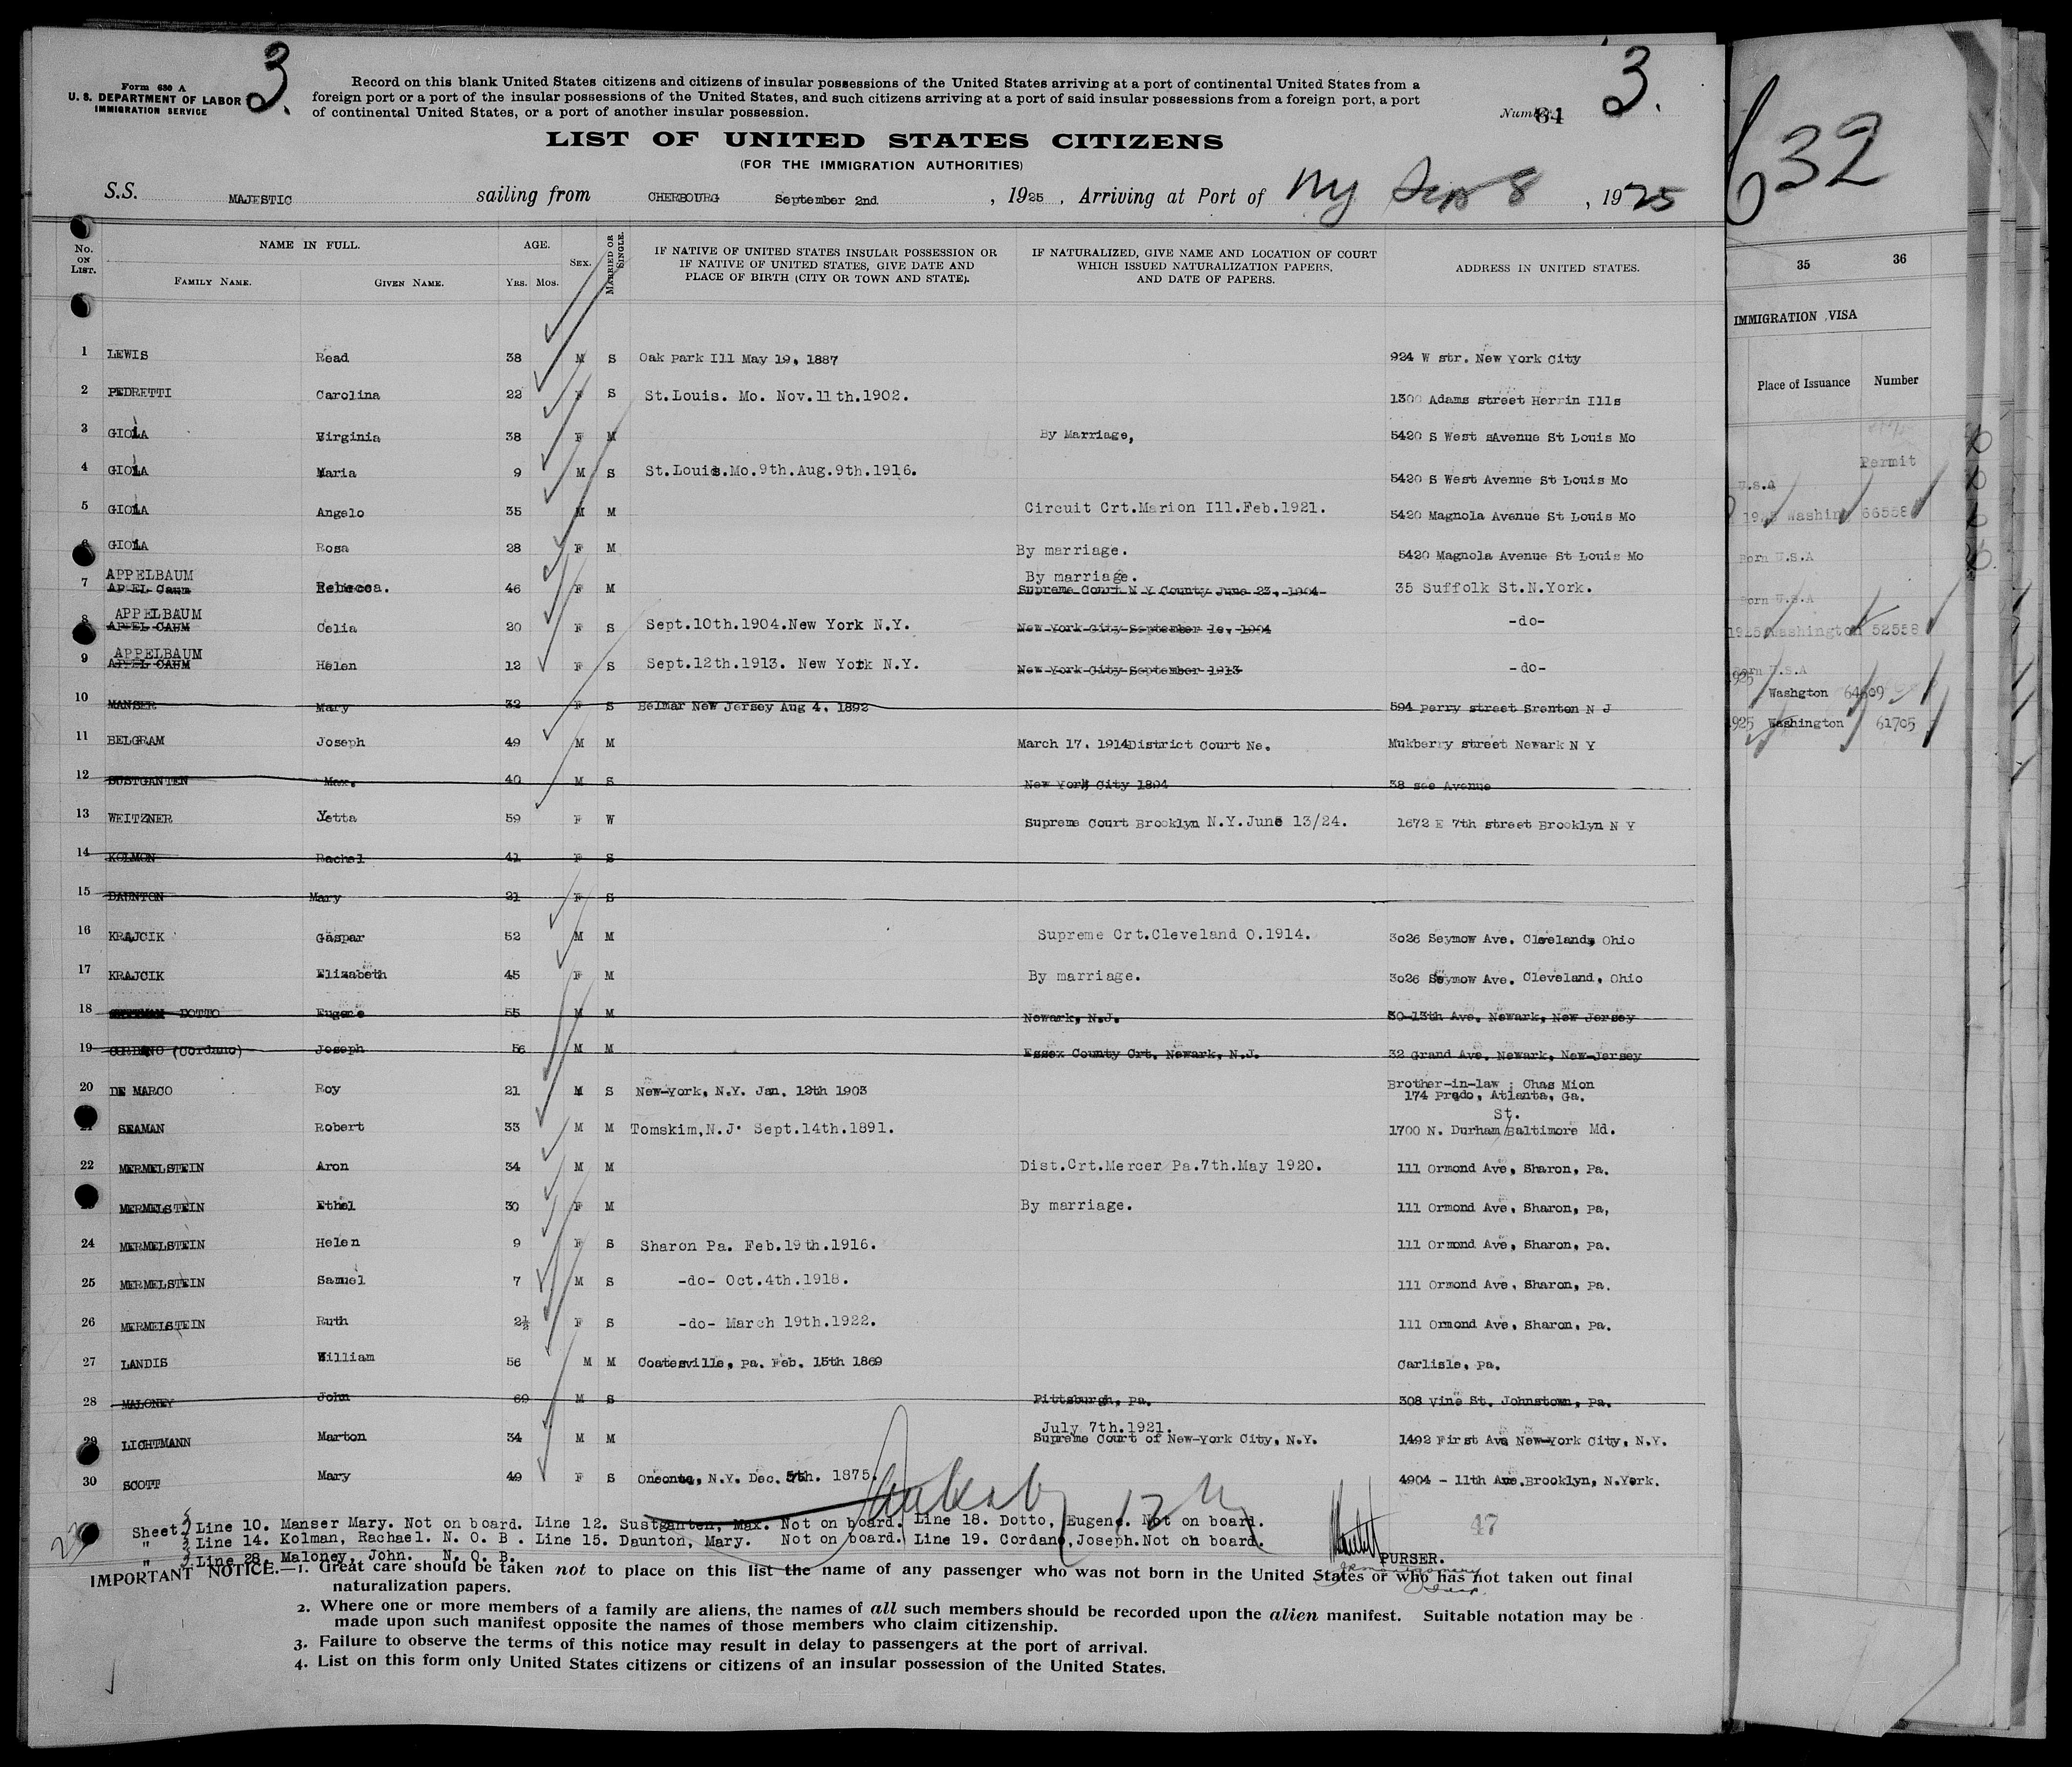 3.
Form 630 A
U. S. DEPARTMENT OF LABOR
IMMIGRATION SERVICE
Record on this blank United States citizens and citizens of insular possessions of the United States arriving at a port of continental United States from a
foreign port or a port of the insular possessions of the United States, and such citizens arriving at a port of said insular possessions from a foreign port, a port
of continental United States, or a port of another insular possession.
Number 64
3.
LIST OF UNITED STATES CITIZENS
(FOR THE IMMIGRATION AUTHORITIES)
S.S. MAJESTIC sailing from CHERBOURG September 2nd , 1925 , Arriving at Port of NY Sep 8 , 1925
No. ON LIST. NAME IN FULL. AGE. SEX. MARRIED OR SINGLE. IF NATIVE OF UNITED STATES INSULAR POSSESSION OR IF NATIVE OF UNITED STATES, GIVE DATE AND PLACE OF BIRTH (CITY OR TOWN AND STATE). IF NATURALIZED, GIVE NAME AND LOCATION OF COURT WHICH ISSUED NATURALIZATION PAPERS, AND DATE OF PAPERS. ADDRESS IN UNITED STATES.
FAMILY NAME. GIVEN NAME. YRS. MOS.
1 LEWIS Read 38 M S Oak park Ill May 19, 1887 924 W str. New York City
2 PEDRETTI Carolina 22 F S St.Louis. Mo. Nov.11th.1902. 1300 Adams street Herrin Ills
3 GIOIA Virginia 38 F M By Marriage, 5420 S West sAvenue St Louis Mo
4 GIOIA Maria 9 M S St.Louis.Mo.9th.Aug.9th.1916. 5420 S West Avenue St Louis Mo
5 GIOIA Angelo 35 M M Circuit Crt.Marion Ill.Feb.1921. 5420 Magnola Avenue St Louis Mo
6 GIOIA Rosa 28 F M By marriage. 5420 Magnola Avenue St Louis Mo
APPELBAUM By marriage.
7 APEL Caum Rebecca. 46 F M Supreme Court N Y County June 23, 1904 35 Suffolk St.N.York.
APPELBAUM
8 APPEL CAUM Celia 20 F S Sept.10th.1904.New York N.Y. New York City September 1o, 1904 -do-
APPELBAUM
9 APPEL CAUM Helen 12 F S Sept.12th.1913. New York N.Y. New York City September 1913 -do-
10 MANSER Mary 32 F S Belmar New Jersey Aug 4, 1892 594 perry street Srenton N J
11 BELGRAM Joseph 49 M M March 17. 1914District Court Ne. Mukberry street Newark N Y
12 SUSTGANTEN Max. 40 M S New York City 1894 38 see Avenue
13 WEITZNER Yetta 59 F W Supreme Court Brooklyn N.Y.June 13/24. 1672 E 7th street Brooklyn N Y
14 KOLMON Rachel 41 F S
15 DAUNTON Mary 21 F S
16 KRAJCIK Gaspar 52 M M Supreme Crt.Cleveland O.1914. 3026 Seymow Ave. Cleveland, Ohio
17 KRAJCIK Elizabeth 45 F M By marriage. 3026 Seymow Ave. Cleveland, Ohio
18 DOTTO Eugene 55 M M Newark, N.J. 30-13th Ave. Newark, New Jersey
19 (Cordano) Joseph 56 M M Essex County Crt. Newark, N.J. 32 Grand Ave. Newark, New-Jersey
20 DE MARCO Roy 21 M S New-York, N.Y. Jan. 12th 1903 Brother-in-law : Chas Mion
174 Prado, Atlanta, Ga.
St.
21 SEAMAN Robert 33 M M Tomskim,N.J. Sept.14th.1891. 1700 N. Durham/Baltimore Md.
22 MERMELSTEIN Aron 34 M M Dist.Crt.Mercer Pa.7th.May 1920. 111 Ormond Ave, Sharon, Pa.
MERMELSTEIN Ethel 30 F M By marriage. 111 Ormond Ave, Sharon, Pa,
24 MERMELSTEIN Helen 9 F S Sharon Pa. Feb.19th.1916. 111 Ormond Ave, Sharon, Pa.
25 MERMELSTEIN Samuel 7 M S -do- Oct.4th.1918. 111 Ormond Ave, Sharon, Pa.
26 MERMELSTEIN Ruth 2½ F S -do- March 19th.1922. 111 Ormond Ave, Sharon, Pa.
27 LANDIS William 56 M M Coatesville, Pa. Feb. 15th 1869 Carlisle, Pa.
28 MALONEY John 60 M S Pittsburgh, Pa. 308 Vine St. Johnstown, Pa.
July 7th.1921.
29 LICHTMANN Marton 34 M M Supreme Court of New-York City, N.Y. 1492 First Ave New-York City, N.Y.
30 SCOTT Mary 49 F S Oneonta, N.Y. Dec. 5th. 1875. 4904 - 11th Ave.Brooklyn, N.York.
Sheet 3 Line 10. Manser Mary. Not on board. Line 12. Sustganten, Max. Not on board. Line 18. Dotto, Eugene. Not on board.
" 3 Line 14. Kolman, Rachael. N. O. B . Line 15. Daunton, Mary. Not on board. Line 19. Cordano,Joseph.Not on board.
" 3 Line 28. Maloney, John. N. O. B.
47
PURSER.
IMPORTANT NOTICE.—1. Great care should be taken not to place on this list the name of any passenger who was not born in the United States or who has not taken out final
naturalization papers.
2. Where one or more members of a family are aliens, the names of all such members should be recorded upon the alien manifest. Suitable notation may be
made upon such manifest opposite the names of those members who claim citizenship.
3. Failure to observe the terms of this notice may result in delay to passengers at the port of arrival.
4. List on this form only United States citizens or citizens of an insular possession of the United States.
632
35 36
IMMIGRATION VISA
Place of Issuance Number
Permit
U.S.A
1925 Washing 66558
Born U.S.A
Born U.S.A
1925 Washington 52558
Born U.S.A
1925 Washgton 64609
1925 Washington 61705